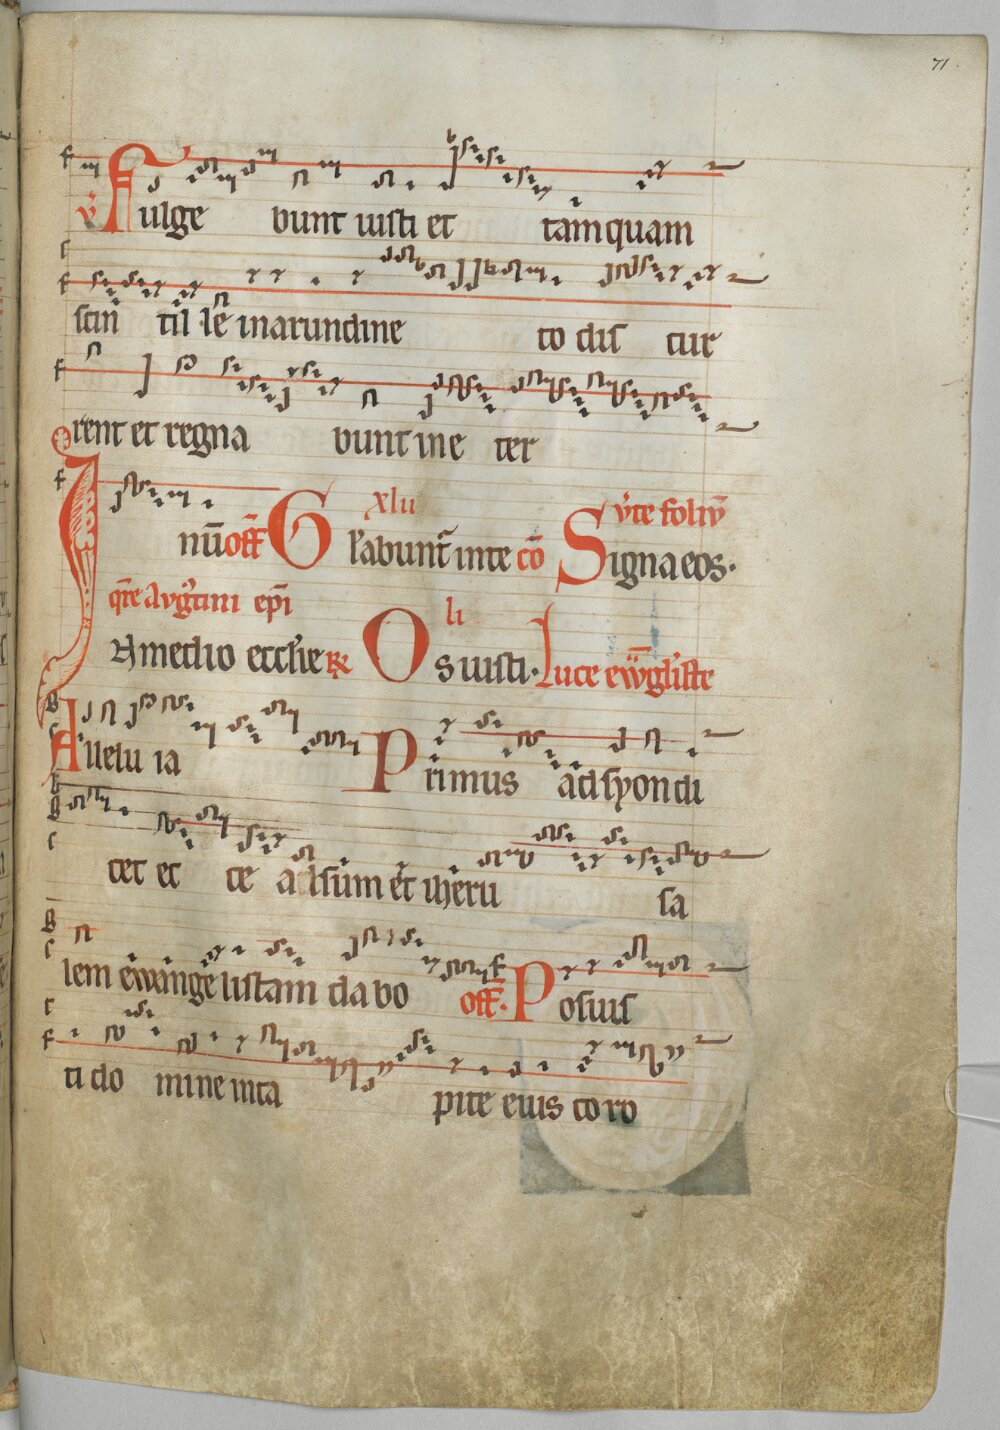 71
v̄ Fulge bunt iusti et tamquam
scin til le inarundine to dis cur
rent et regna bunt ine ter
nū off̄ Glabunt̄ inte cō Signa eos.
xlii
Amedio eccl'ie R̄ Os iusti. Luce ew̄gl'iste
li
Allelu ia Primus ad syon di
cet ec ce adsum et iheru sa
lem ewangelistam da bo off̄. Posuis
ti do mine inca pite eius coro